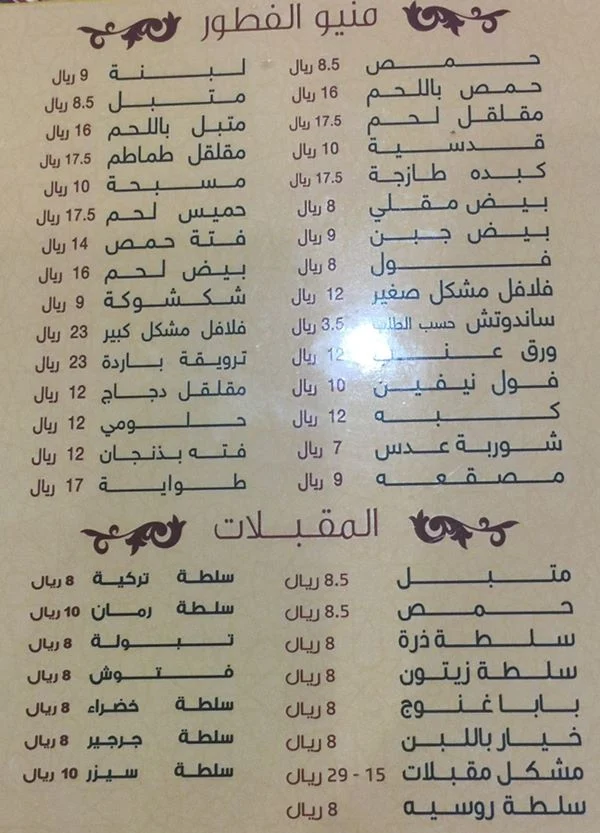 منيو الفطور
حمص 8.5 ريال
حمص باللحم 16 ريال
مقلقل لحم 17.5 ريال
قدسية 10 ريال
كبده طازجة 17.5 ريال
بيض مقلي 8 ريال
بيض جبن 9 ريال
فول 8 ريال
فلافل مشكل صغير 12 ريال
ساندوتش حسب الطلب 3.5 ريال
ورق عنب 12 ريال
فول نيفين 10 ريال
كبه 12 ريال
شوربة عدس 7 ريال
مصقعه 9 ريال
لبنة 9 ريال
متبل 8.5 ريال
متبل باللحم 16 ريال
مقلقل طماطم 17.5 ريال
مسبحة 10 ريال
حميس لحم 17.5 ريال
فتة حمص 14 ريال
بيض لحم 16 ريال
شكشوكة 9 ريال
فلافل مشكل كبير 23 ريال
ترويقة باردة 23 ريال
مقلقل دجاج 12 ريال
حلومي 12 ريال
فته بذنجان 12 ريال
طواية 17 ريال
المقبلات
متبل 8.5 ريال
حمص 8.5 ريال
سلطة ذرة 8 ريال
سلطة زيتون 8 ريال
بابا غنوج 8 ريال
خيار باللبن 8 ريال
مشكل مقبلات 15 - 29 ريال
سلطة روسيه 8 ريال
سلطة تركية 8 ريال
سلطة رمان 10 ريال
تبولة 8 ريال
فتوش 8 ريال
سلطة خضراء 8 ريال
سلطة جرجير 8 ريال
سلطة سيزر 10 ريال